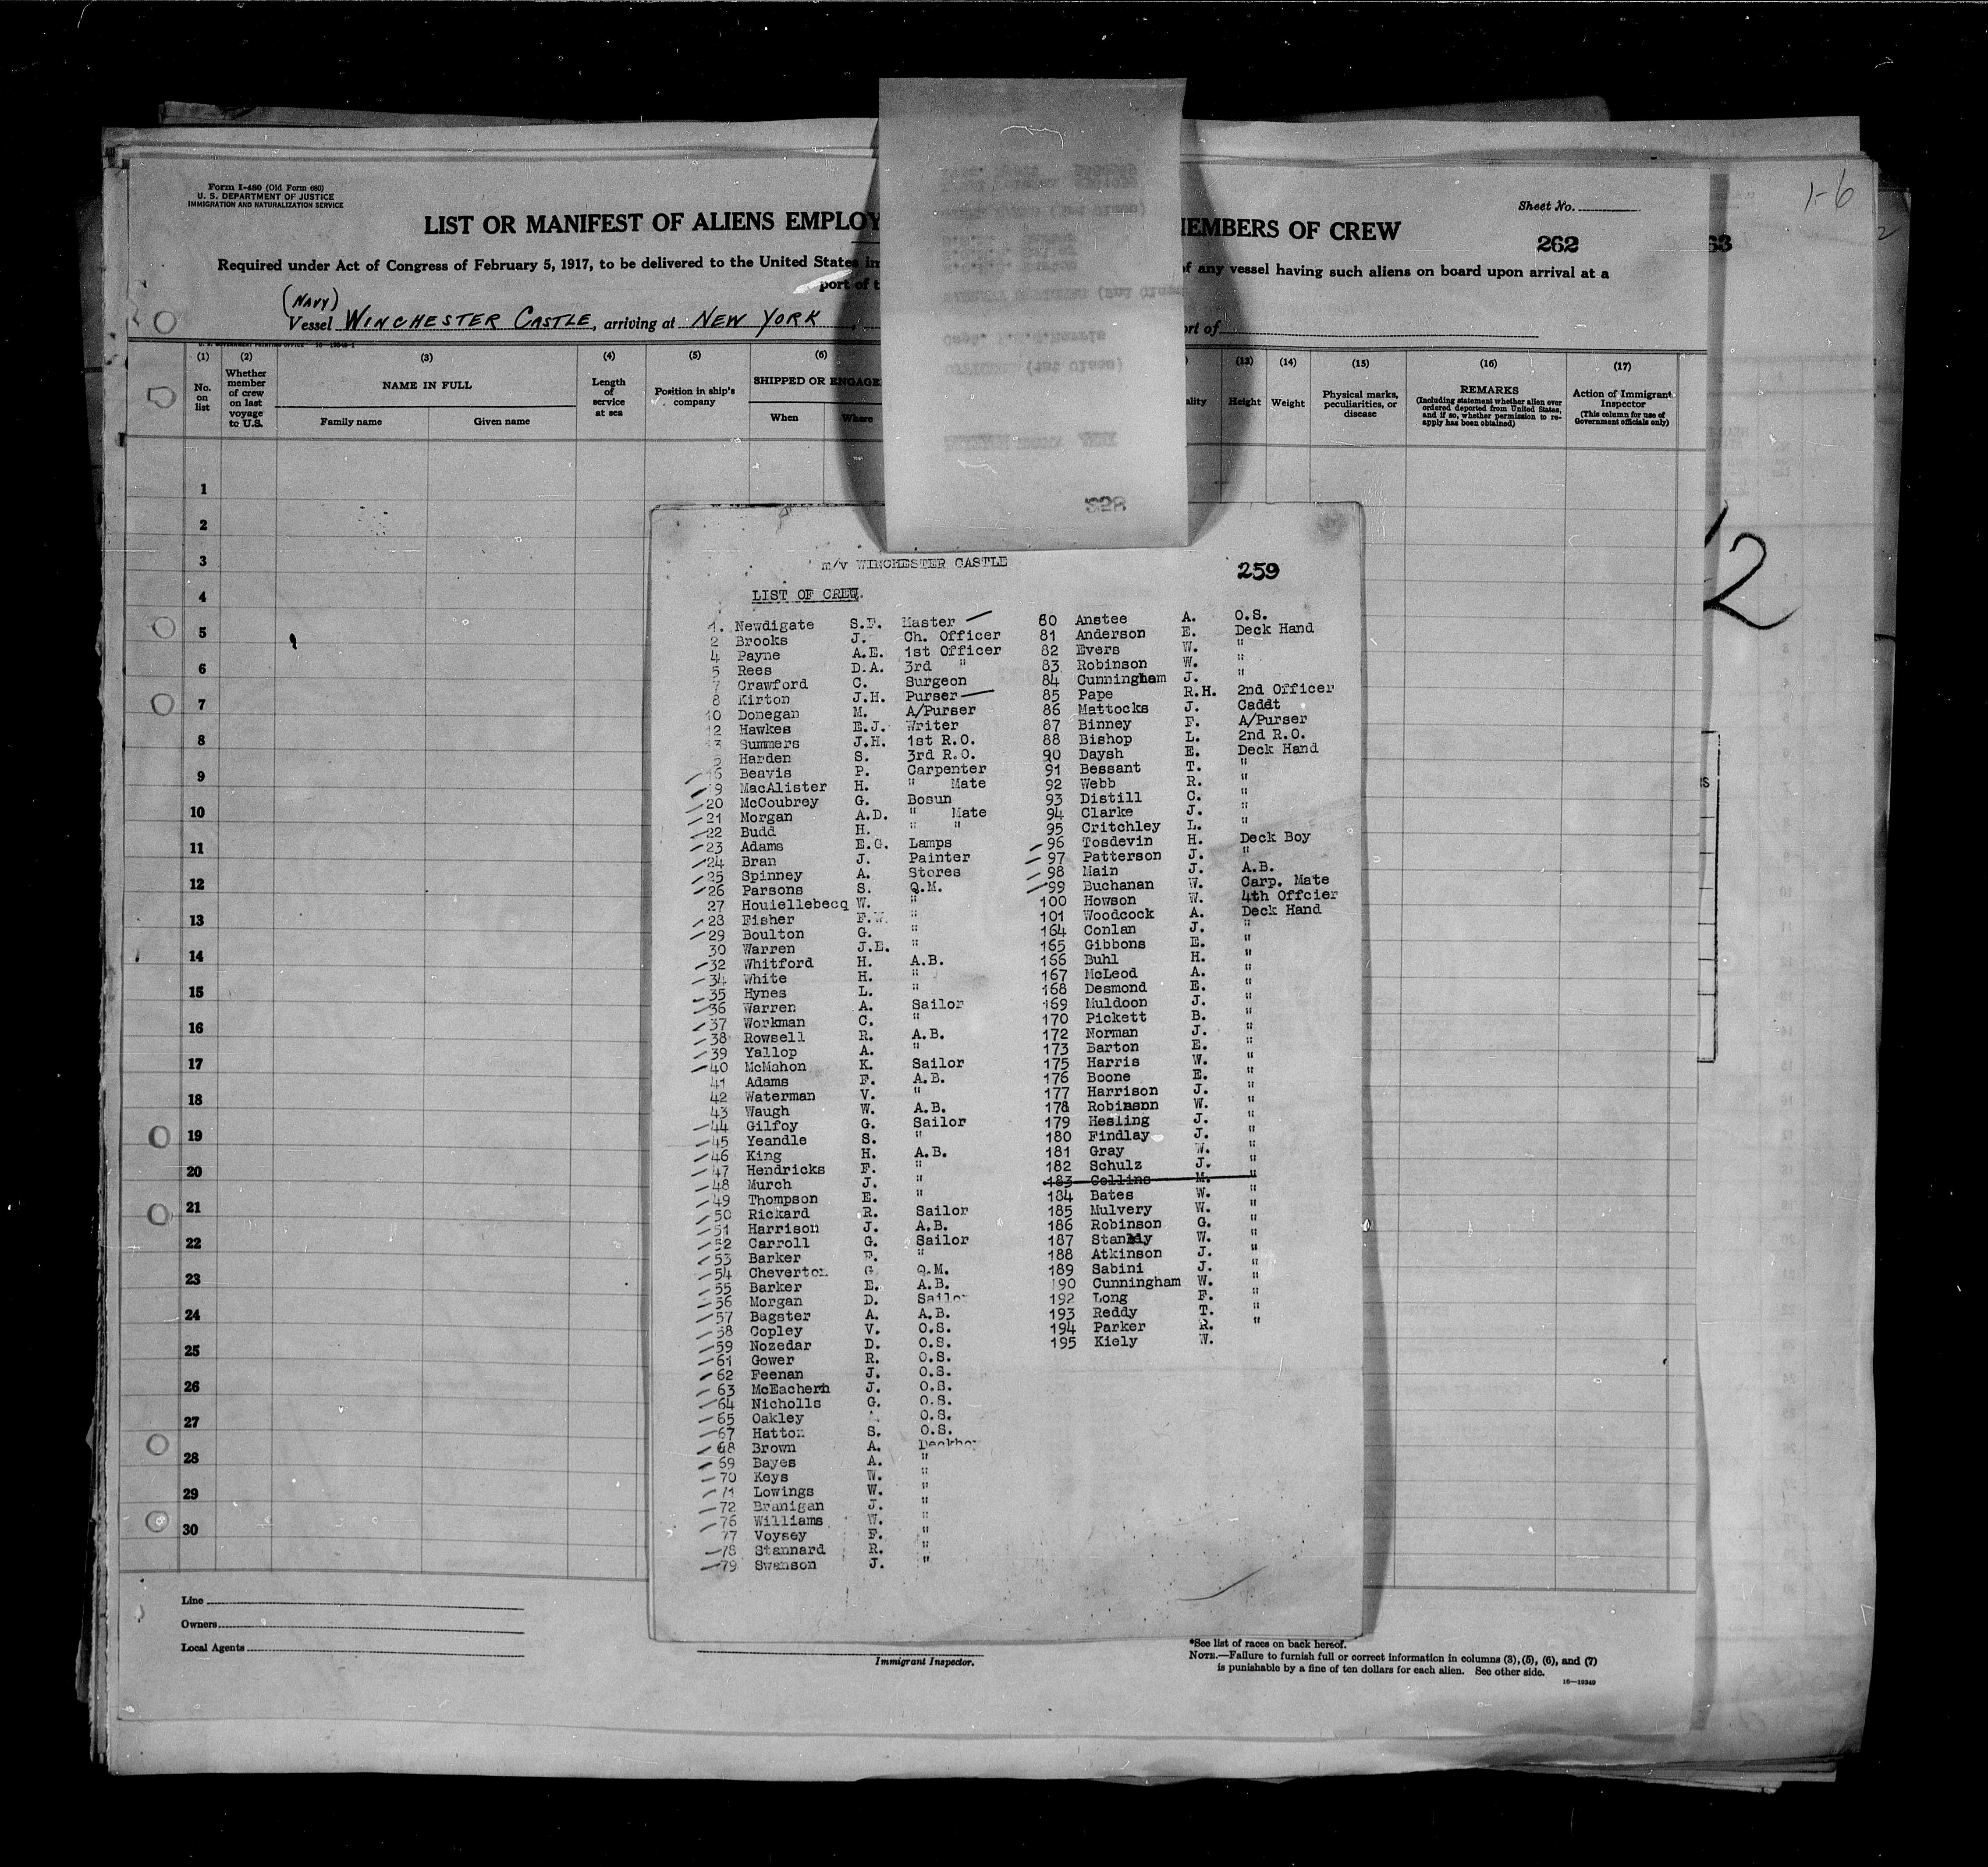 Form I-480 (Old Form 680)
U. S. DEPARTMENT OF JUSTICE
IMMIGRATION AND NATURALIZATION SERVICE
1-6
Sheet No.
LIST OR MANIFEST OF ALIENS EMPLOY
EMBERS OF CREW
262
63
Required under Act of Congress of February 5, 1917, to be delivered to the United States
of any vessel having such aliens on board upon arrival at a
port of
(NAVY)
Vessel WINCHESTER CASTLE, arriving at NEW YORK
port of
(1) (2) (3) (4) (5) (6) (13) (14) (15) (16) (17)
No. on list
Whether member of crew on last voyage to U.S.
NAME IN FULL
Family name
Given name
Length of service at sea
Position in ship's company
SHIPPED OR ENGAGE
When
Where
Height
Weight
Physical marks, peculiarities, or disease
REMARKS
(Including statement whether alien ever ordered deported from United States, and if so, whether permission to re-apply has been obtained)
Action of Immigrant Inspector
(This column for use of Government officials only)
328
1
2
3
4
5
6
7
8
9
10
11
12
13
14
15
16
17
18
19
20
21
22
23
24
25
26
27
28
29
30
2
m/v WINCHESTER CASTLE
259
LIST OF CREW.
1. Newdigate S.F. Master
2 Brooks J. Ch. Officer
4 Payne A.E. 1st Officer
5 Rees D.A. 3rd "
7 Crawford C. Surgeon
8 Kirton J.H. Purser
10 Donegan M. A/Purser
12 Hawkes E.J. Writer
13 Summers J.H. 1st R.O.
5 Harden S. 3rd R.O.
16 Beavis P. Carpenter
19 MacAlister H. " Mate
20 McCoubrey G. Bosun
21 Morgan A.D. " Mate
22 Budd H. " "
23 Adams E.G. Lamps
24 Bran J. Painter
25 Spinney A. Stores
26 Parsons S. Q.M.
27 Houiellebecq W. "
28 Fisher F.W. "
29 Boulton G. "
30 Warren J.E. "
32 Whitford H. A.B.
34 White H. "
35 Hynes L. "
36 Warren A. Sailor
37 Workman C. "
38 Rowsell R. A.B.
39 Yallop A. "
40 McMahon K. Sailor
41 Adams F. A.B.
42 Waterman V. "
43 Waugh W. A.B.
44 Gilfoy G. Sailor
45 Yeandle S. "
46 King H. A.B.
47 Hendricks F. "
48 Murch J. "
49 Thompson E. "
50 Rickard R. Sailor
51 Harrison J. A.B.
52 Carroll G. Sailor
53 Barker F. "
54 Cheverton G Q.M.
55 Barker E. A.B.
56 Morgan D. Sailor
57 Bagster A. A.B.
58 Copley V. O.S.
59 Nozedar D. O.S.
61 Gower R. O.S.
62 Feenan J. O.S.
63 McEachern J. O.S.
64 Nicholls G. O.S.
65 Oakley O.S.
67 Hatton S. O.S.
68 Brown A. Deckboy
69 Bayes A. "
70 Keys W. "
71 Lowings W. "
72 Branigan J. "
76 Williams W. "
77 Voysey F. "
78 Stannard R. "
79 Swanson J. "
80 Anstee A. O.S.
81 Anderson E. Deck Hand
82 Evers W. "
83 Robinson W. "
84 Cunningham J. "
85 Pape R.H. 2nd Officer
86 Mattocks J. Cadet
87 Binney F. A/Purser
88 Bishop L. 2nd R.O.
90 Daysh E. Deck Hand
91 Bessant T. "
92 Webb R. "
93 Distill C. "
94 Clarke J. "
95 Critchley L. "
96 Tosdevin H. Deck Boy
97 Patterson J. "
98 Main J. A.B.
99 Buchanan W. Carp. Mate
100 Howson W. 4th Offcier
101 Woodcock A. Deck Hand
164 Conlan J. "
165 Gibbons E. "
166 Buhl H. "
167 McLeod A. "
168 Desmond E. "
169 Muldoon J. "
170 Pickett B. "
172 Norman J. "
173 Barton E. "
175 Harris W. "
176 Boone E. "
177 Harrison J. "
178 Robinson W. "
179 Hesling J. "
180 Findlay J. "
181 Gray W. "
182 Schulz J. "
183 Collins M. "
184 Bates W. "
185 Mulvery W. "
186 Robinson G. "
187 Stanley W. "
188 Atkinson J. "
189 Sabini J. "
190 Cunningham W. "
192 Long F. "
193 Reddy T. "
194 Parker R. "
195 Kiely W.
Line
Owners
Local Agents
Immigrant Inspector.
*See list of races on back hereof.
NOTE.—Failure to furnish full or correct information in columns (3), (5), (6), and (7)
is punishable by a fine of ten dollars for each alien. See other side.
16—19349